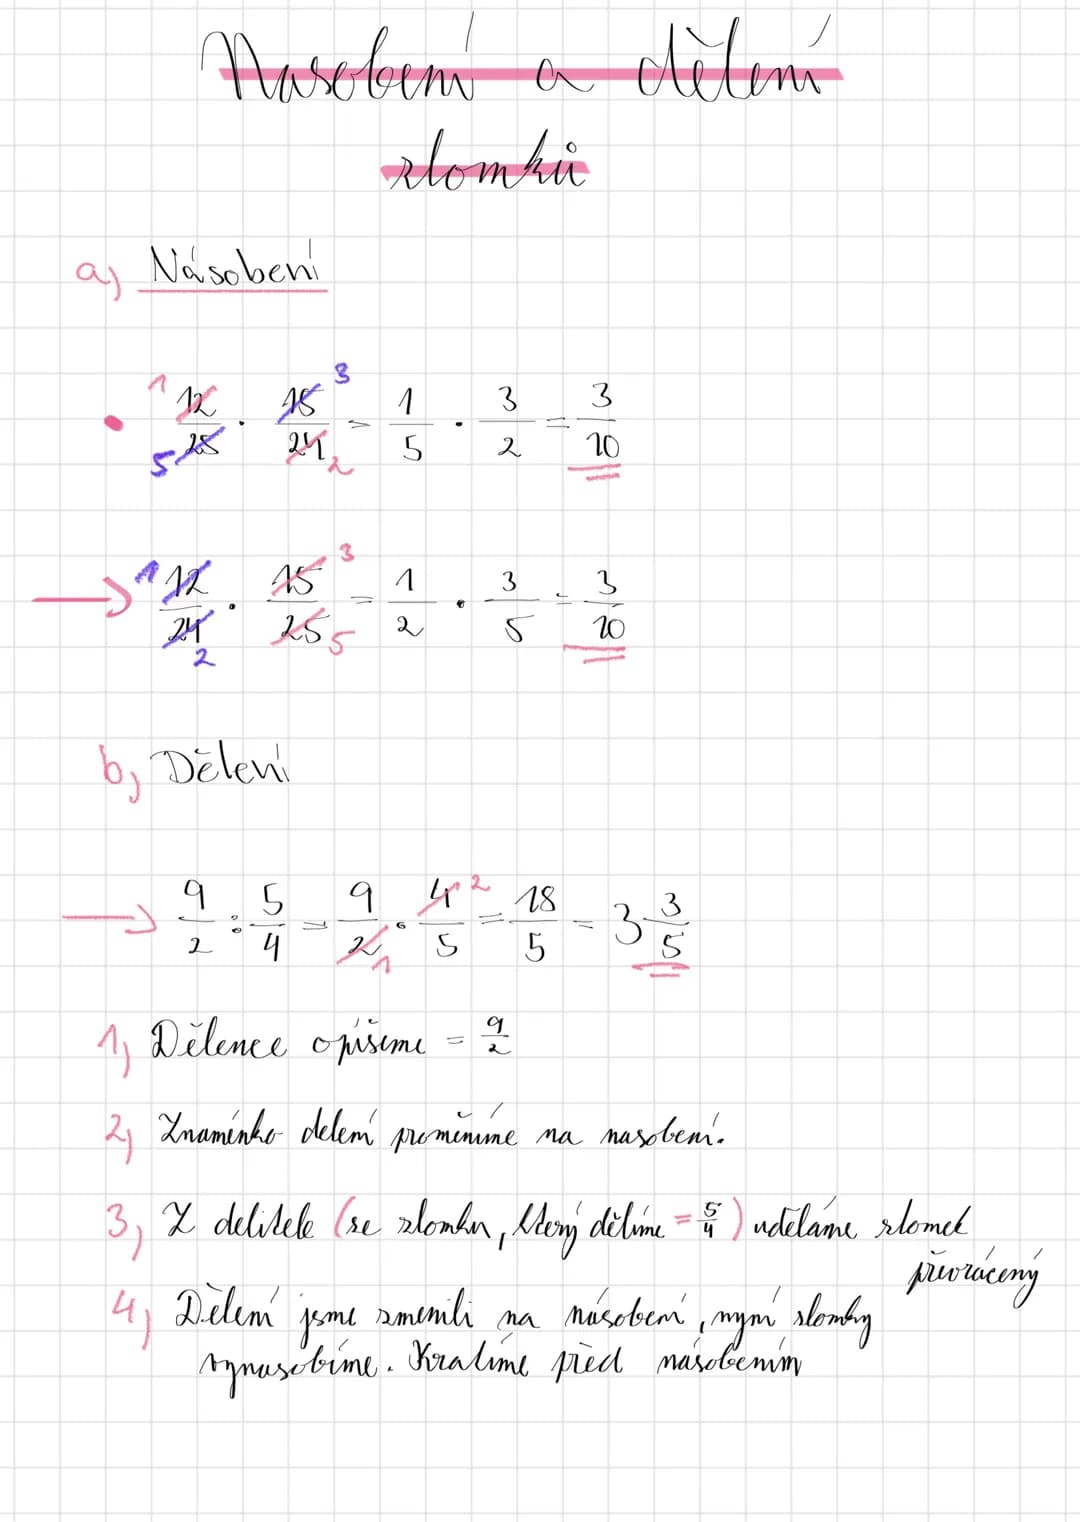 Nasobení a dělení
zlomků
a) Násobení
1 12/25 5 · 15/24 3 2 = 1/5 · 3/2 = 3/10
→ 1 12/24 2 · 15/25 3 5 = 1/2 · 3/5 = 3/10
b) Dělení
→ 9/2 : 5/4 = 9/2 1 · 4/5 2 = 18/5 = 3 3/5
1) Dělence opíšeme = 9/2
2) Znaménko delení proměníme na nasobení.
3) Z delitele (se zlomku, který dělíme = 5/4) uděláme zlomek
převrácený
4) Dělení jsme zmenili na násobení, nyní zlomky
vynasobíme. Kratíme před násobením